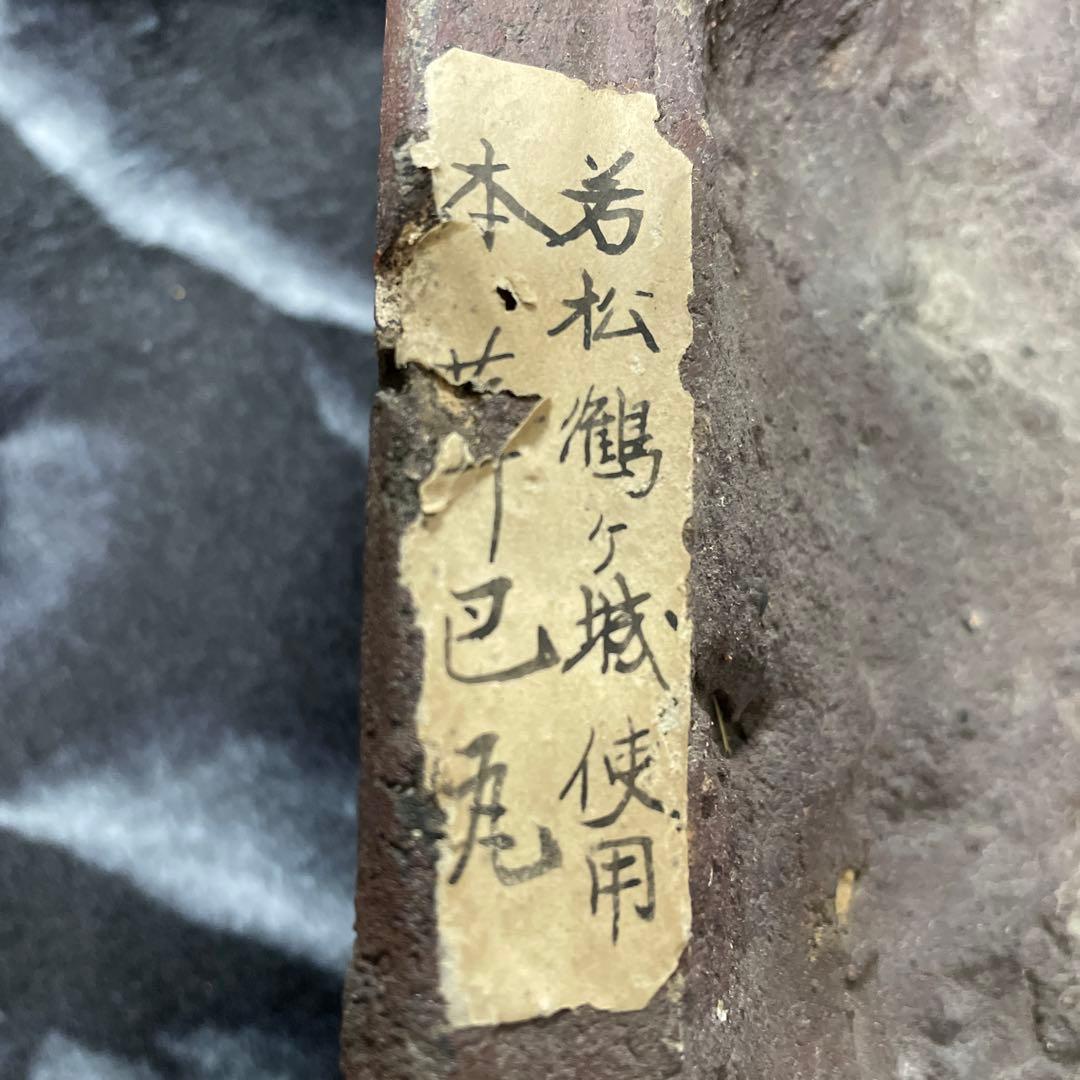 若松鶴ヶ城使用
本 巴瓦